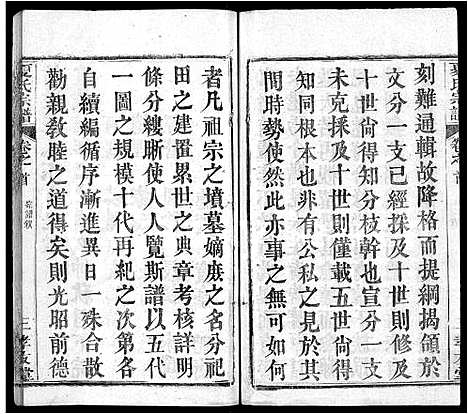 刻難通輯故降格而提綱揭領於
文分一世已經採及於前則修及
未克採及十世明知分枝幹其不
知與同本有公私之見存無如限
時間時勢使然此亦事之無可如何
者凡祖宗之墳墓嫡庶之名分祀
田之建置累世之典章考核詳明
條分縷晰使人人覽斯譜以五代
一圖之規模十代再紀之次第各
自續編循序漸進異日一殊合散
勸親教睦之道得矣則光昭前德
夏氏宗譜
卷之首